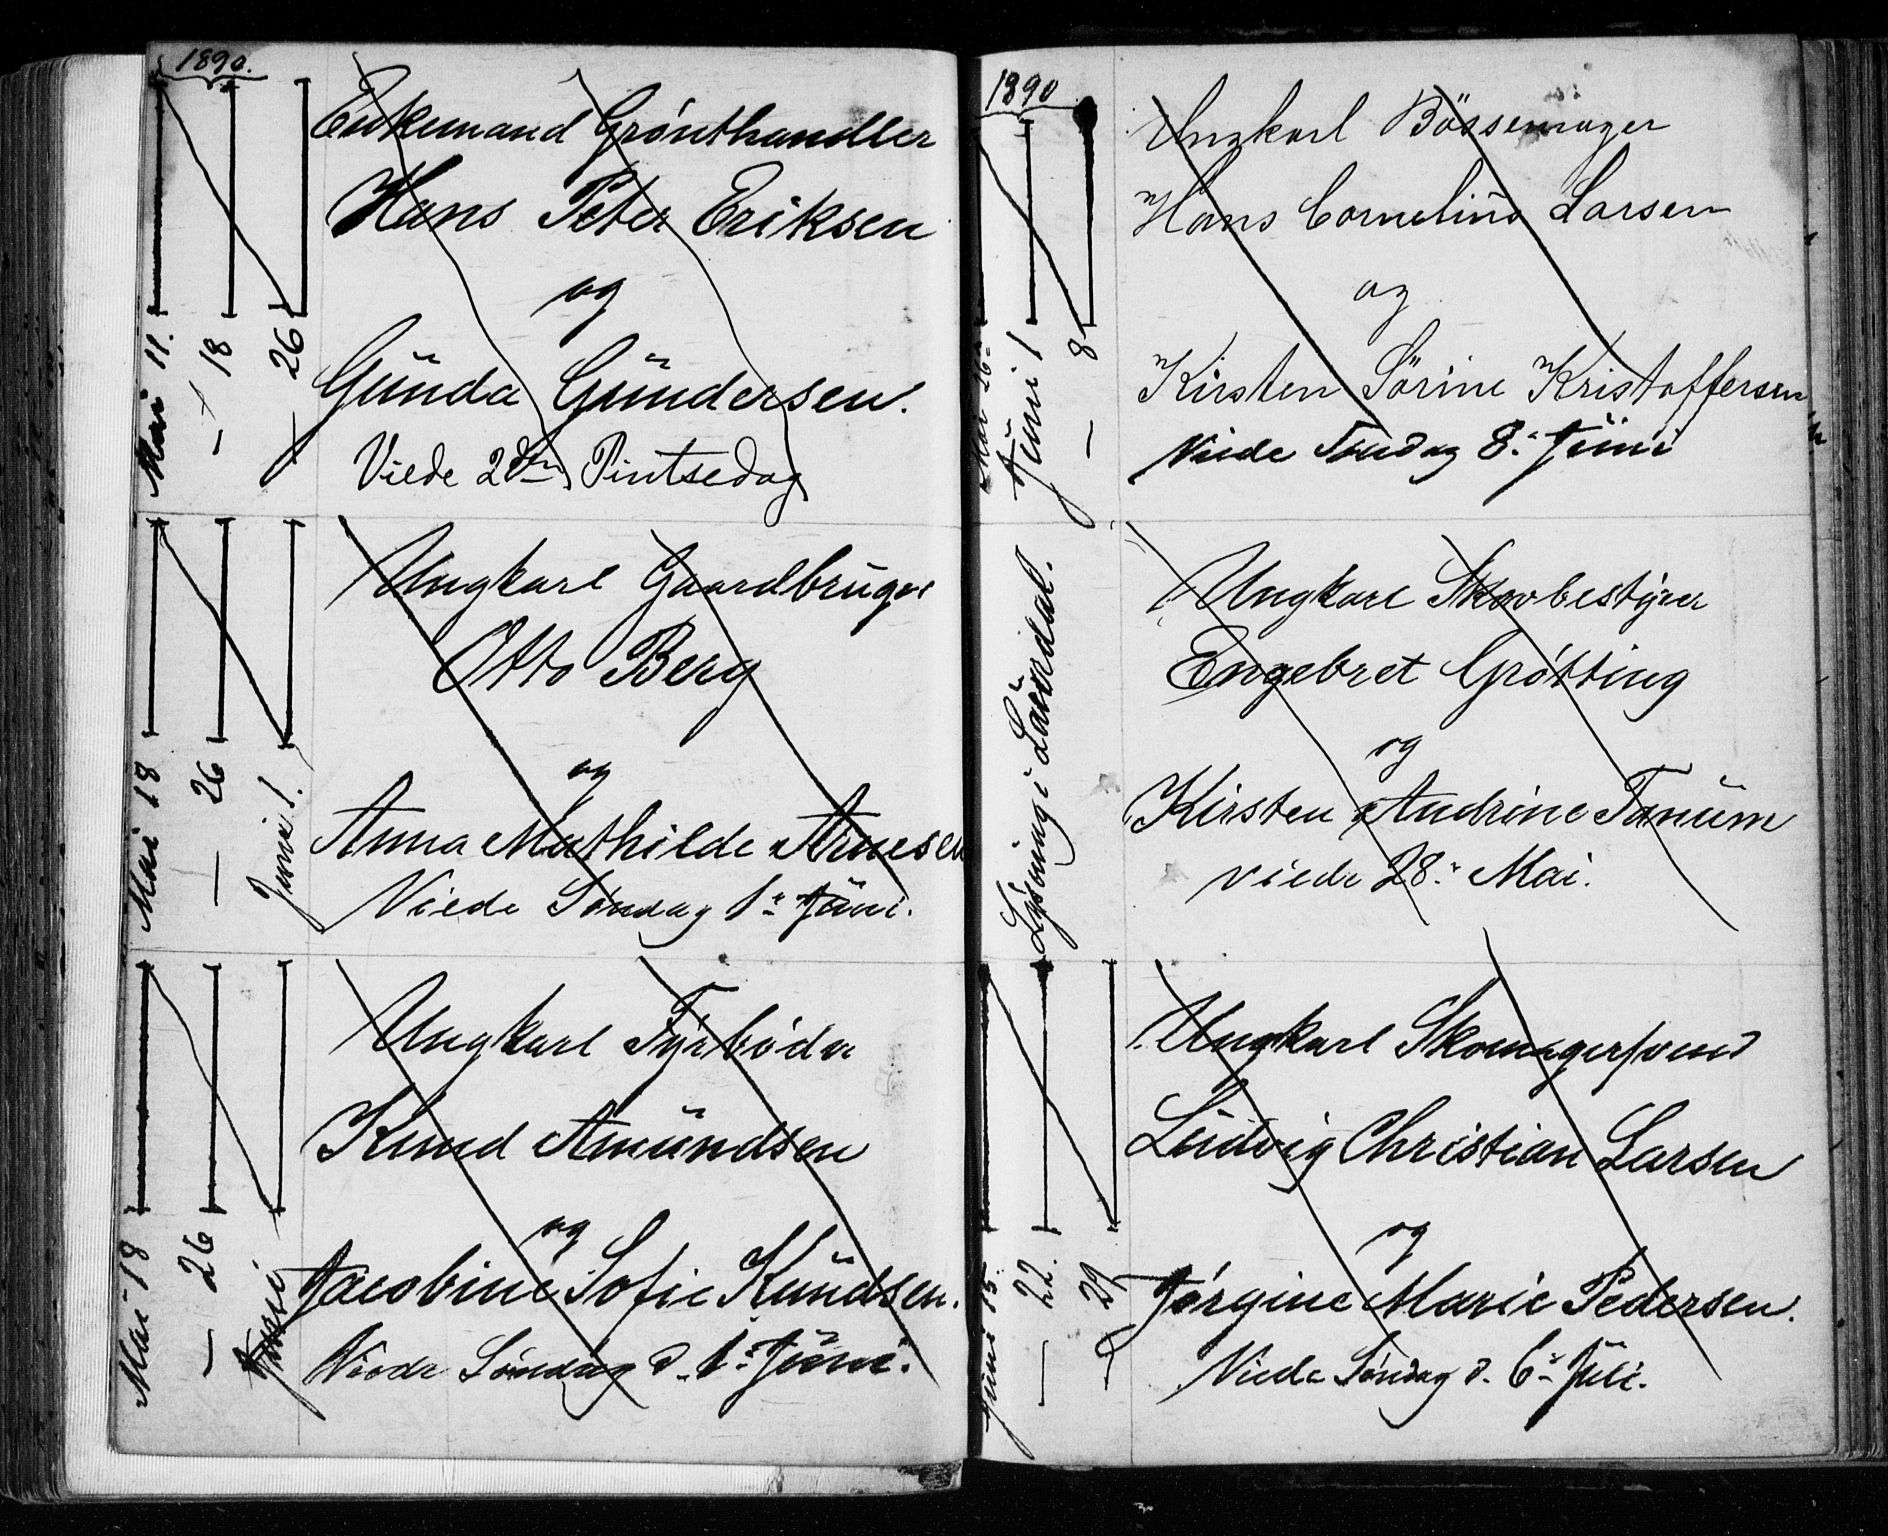 1890.
Mai 11.
— 18
— 26
Enkemand Grónthandler
Hans Peter Eriksen
og
Günda Gündersen.
Viede 2den Pintsedag
Mai 18
— 26
Juni 1.
Ungkarl Gaardbruger
Otto Berg
og
Anna Mathilde Arnesen
Viede Søndag 1ste Jüni.
Mai 18
— 26
Juni
Ungkarl Fyrbøder
Knud Amündsen
og
Jacobine Sofie Knüdsen.
Viede Søndag d. 1ste Jüni.
1890
Mai 26
Juni 1
— 8
Ungkarl Bössemager
Hans Cornelius Larsen
og
Kirsten Sörine Kristoffersen
Viede Søndag 8de Jüni
Lysning i Laurdal.
Ungkarl Skovbestyrer
Engebret Grótting
og
Kirsten Andrine Tanüm
viede 28de Mai.
Juni 15
— 22.
— 29
Ungkarl Skomagersvend
Lüdvig Christian Larsen
og
Jórgine Marie Pedersen.
Viede Søndag d. 6te Jüli.